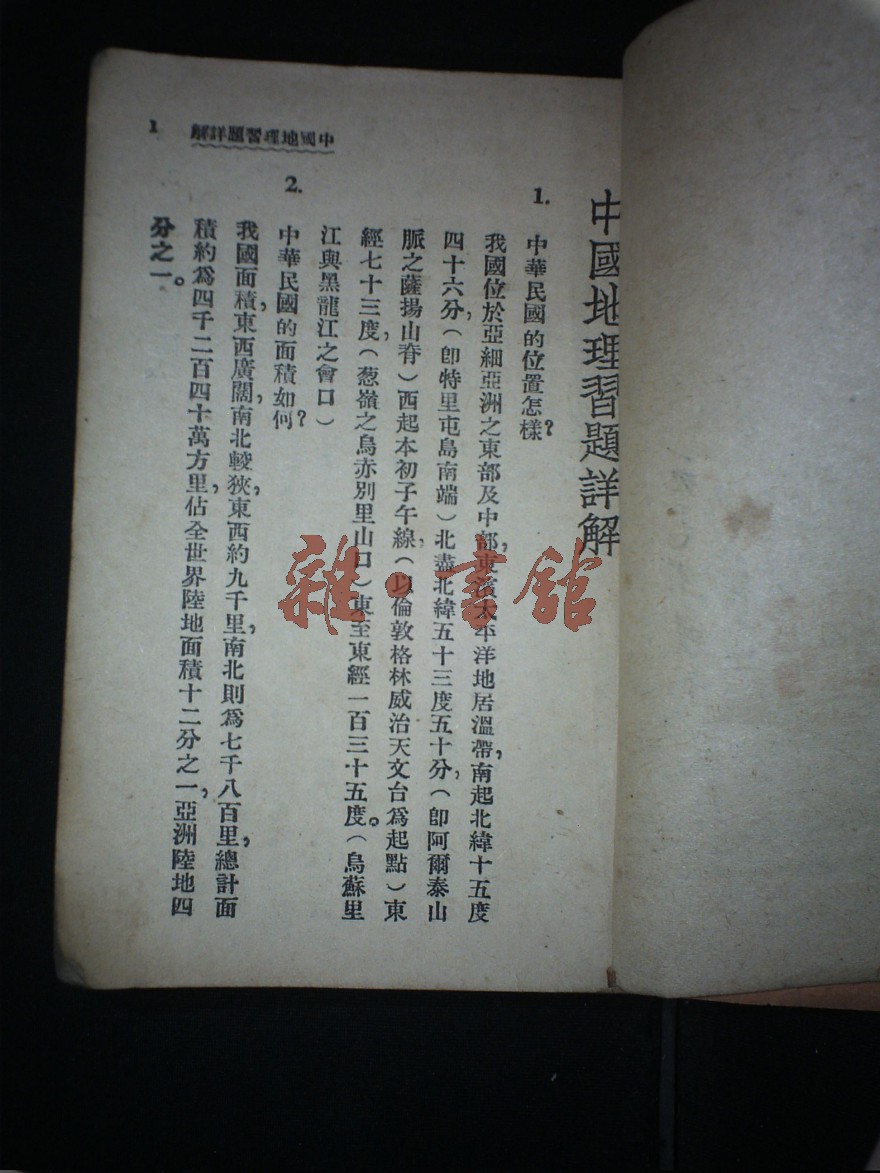 中國地理習題詳解
1. 中華民國的位置怎樣？
我國位於亞細亞洲之東部及中部，東濱太平洋地居溫帶，南起北緯十五度
四十六分，（卽特里屯島南端）北盡北緯五十三度五十分，（卽阿爾泰山
脈之薩揚山脊）西起本初子午線，（以倫敦格林威治天文台爲起點）東
經七十三度，（葱嶺之烏赤別里山口）東至東經一百三十五度。（烏蘇里
江與黑龍江之會口）
2. 中華民國的面積如何？
我國面積，東西廣闊，南北較狹，東西約九千里，南北則爲七千八百里，總計面
積約爲四千二百四十萬方里，佔全世界陸地面積十二分之一，亞洲陸地四
分之一。
中國地理習題詳解 1
雜·書館